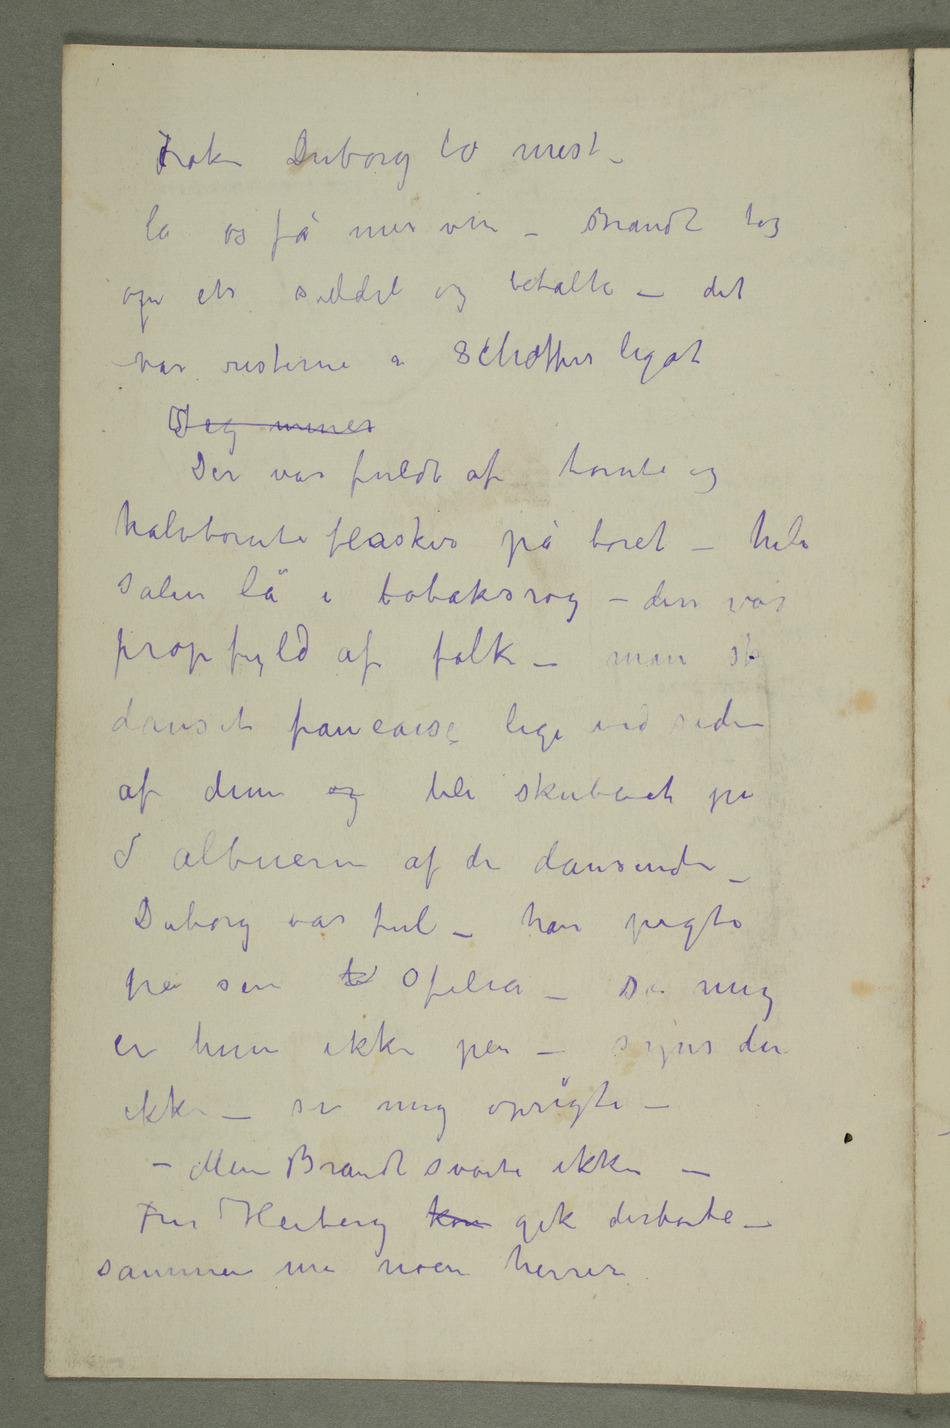 Frøken Duborg lo mest –
la os få mer vin – Brandt tog
op en seddel og betalte – det
var resterne a Schæffers legat
Jeg mines
Der var fuldt af tomte og
halvtomte flasker på boret – hele
salen lå i tobaksrøg – den var
propfyld af folk – man
danset francaise lige ved siden
af dem og ble skubbet på
albuerne af de dansende –
Duborg var ful – han pegte
på sin Ofelia – Si mig
er hun ikke pen – synes du
ikke – si mig oprigti –
– Men Brandt svarte ikke –
Fru Heiberg kom gik derborte –
sammen me noen herrer